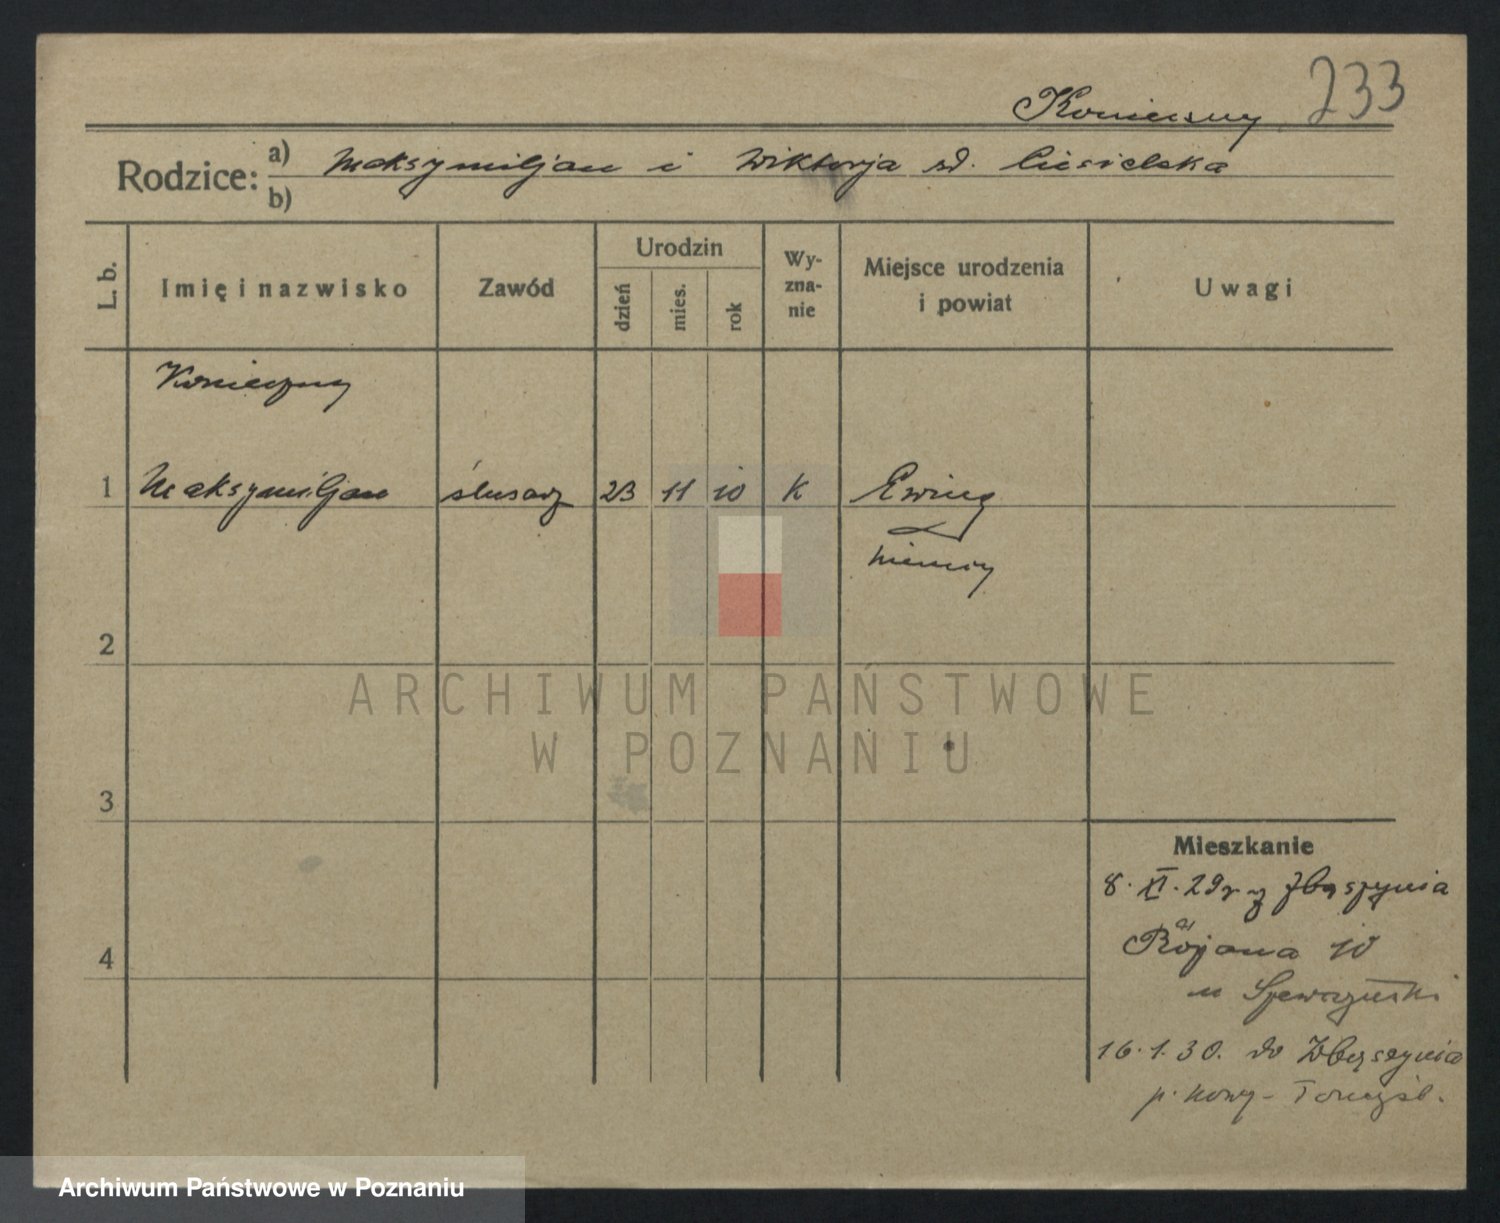 Konieczny 233
Rodzice: a) Maksymiljan i Wiktorja sd. Ciesielska
b)
L. b.
Imię i nazwisko
Zawód
Urodzin
dzień
mies.
rok
Wy-
zna-
nie
Miejsce urodzenia
i powiat
Uwagi
Konieczny
1 Maksymiljan ślusarz 23 11 10 K Ewing
Niemcy
2
3
4
Mieszkanie
8. XI. 29 r z Zbąszynia
10
16.1.30. do Zbąszynia
p. Nowy-Tomyśl.
ARCHIWUM PAŃSTWOWE
W POZNANIU
Archiwum Państwowe w Poznaniu